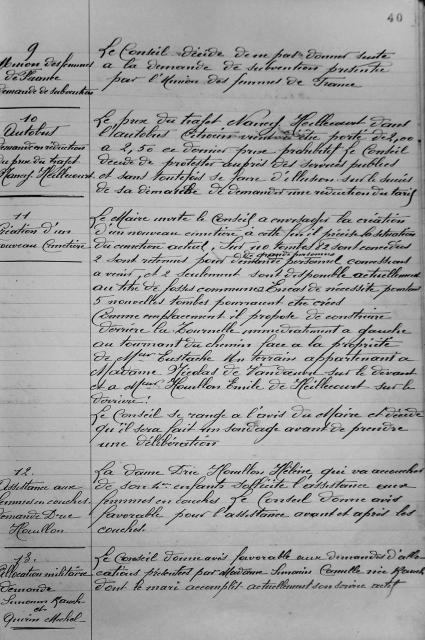 40
9
Union des femmes
de France
demande de subvention
Le Conseil décide de ne pas donner suite
a la demande de subvention présentée
par l'Union des femmes de France
10
Autobus
Demande en réduction
du prix du trajet
Nancy Heillecourt
Le prix du trajet Nancy Heillecourt dans
l'autobus Citroën porté de 2,00
a 2,50 ce dernier prix prohibitif le Conseil
décide de protester auprès des services publics
et sans toutefois se faire d'illusion sur le succès
de sa démarche de demander une réduction du tarif
11
Création d'un
nouveau Cimetière
Le Maire invite le Conseil a envisager la création
d'un nouveau cimetière à cette fin il précise la situation
du cimetière actuel, Sur tombes 82 sont concédées
2 sont retenues pour de grandes personnes
a venir, et 2 seulement sont disponible actuellement
au titre de fosses communes En cas de nécessité
5 nouvelles tombes pourraient être créées
Comme emplacement il propose de construire
derrière la Tournelle immédiatement a gauche
au tournant du chemin face a la propriété
de Mr Eustache Un terrain appartenant a
Madame Nicolas de Vandoeuvre sur le devant
et a Mr Houllon Emile de Heillecourt sur le
derrière.
Le Conseil se range a l'avis du Maire et décide
qu'il sera fait un sondage avant de prendre
une délibération
12.
Assistance aux
femmes en couches
demande Drie
Houillon
La dame Drie Houillon Hélène, qui va accoucher
de son enfant sollicite l'assistance aux
femmes en couches Le Conseil donne avis
favorable pour l'assistance avant et après les
couches.
13.
Allocation militaire
demande
Simonin Rauch
et
Quirin Michel
Le Conseil donne avis favorable aux demandes d'allo-
cations présentées par Madame Simonin Camille née Rauch
dont le mari accomplit actuellement son service actif